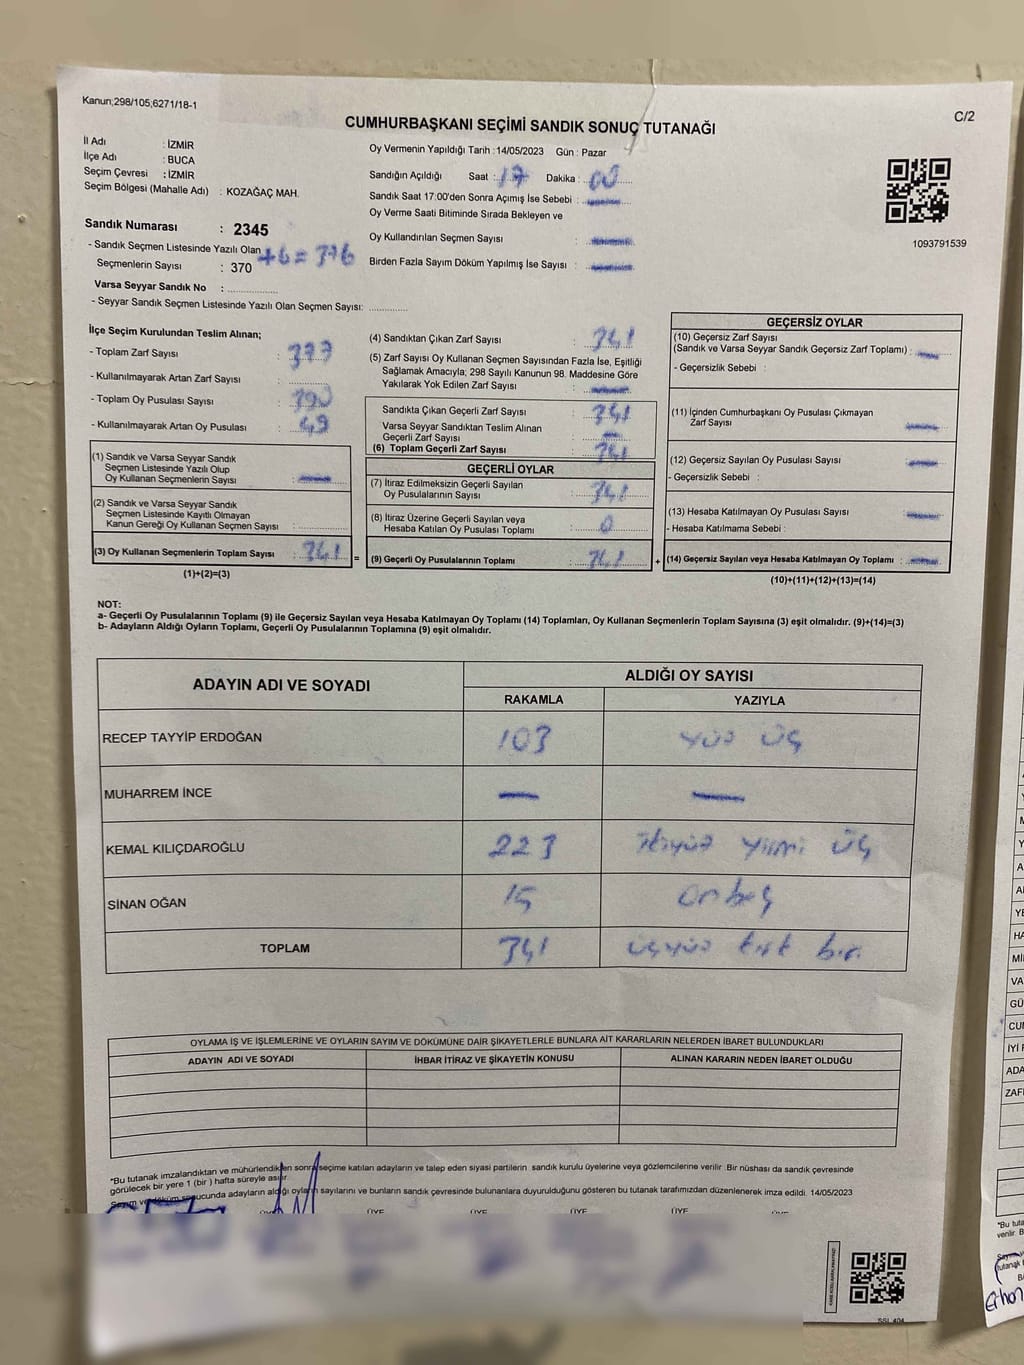 Kanun;298/105;6271/18-1
C/2
CUMHURBAŞKANI SEÇİMİ SANDIK SONUÇ TUTANAĞI
İl Adı : İZMİR
İlçe Adı : BUCA
Seçim Çevresi : İZMİR
Seçim Bölgesi (Mahalle Adı) : KOZAĞAÇ MAH.
Sandık Numarası : 2345
- Sandık Seçmen Listesinde Yazılı Olan
Seçmenlerin Sayısı : 370 +6= 376
Varsa Seyyar Sandık No :
- Seyyar Sandık Seçmen Listesinde Yazılı Olan Seçmen Sayısı:
Oy Vermenin Yapıldığı Tarih :14/05/2023 Gün : Pazar
Sandığın Açıldığı Saat : 17 Dakika : 00
Sandık Saat 17:00'den Sonra Açımış İse Sebebi : —
Oy Verme Saati Bitiminde Sırada Bekleyen ve
Oy Kullandırılan Seçmen Sayısı : —
Birden Fazla Sayım Döküm Yapılmış İse Sayısı : —
1093791539
İlçe Seçim Kurulundan Teslim Alınan;
- Toplam Zarf Sayısı : 377
- Kullanılmayarak Artan Zarf Sayısı :
- Toplam Oy Pusulası Sayısı : 390
- Kullanılmayarak Artan Oy Pusulası : 49
(1) Sandık ve Varsa Seyyar Sandık
Seçmen Listesinde Yazılı Olup
Oy Kullanan Seçmenlerin Sayısı : —
(2) Sandık ve Varsa Seyyar Sandık
Seçmen Listesinde Kayıtlı Olmayan
Kanun Gereği Oy Kullanan Seçmen Sayısı :
(3) Oy Kullanan Seçmenlerin Toplam Sayısı : 341
(1)+(2)=(3)
(4) Sandıktan Çıkan Zarf Sayısı : 341
(5) Zarf Sayısı Oy Kullanan Seçmen Sayısından Fazla İse, Eşitliği
Sağlamak Amacıyla; 298 Sayılı Kanunun 98. Maddesine Göre
Yakılarak Yok Edilen Zarf Sayısı : —
Sandıkta Çıkan Geçerli Zarf Sayısı : 341
Varsa Seyyar Sandıktan Teslim Alınan
Geçerli Zarf Sayısı : —
(6) Toplam Geçerli Zarf Sayısı : 341
GEÇERLİ OYLAR
(7) İtiraz Edilmeksizin Geçerli Sayılan
Oy Pusulalarının Sayısı : 341
(8) İtiraz Üzerine Geçerli Sayılan veya
Hesaba Katılan Oy Pusulası Toplamı : 0
= (9) Geçerli Oy Pusulalarının Toplamı : 341 +
GEÇERSİZ OYLAR
(10) Geçersiz Zarf Sayısı
(Sandık ve Varsa Seyyar Sandık Geçersiz Zarf Toplamı) : —
- Geçersizlik Sebebi :
(11) İçinden Cumhurbaşkanı Oy Pusulası Çıkmayan
Zarf Sayısı : —
(12) Geçersiz Sayılan Oy Pusulası Sayısı : —
- Geçersizlik Sebebi :
(13) Hesaba Katılmayan Oy Pusulası Sayısı : —
- Hesaba Katılmama Sebebi :
(14) Geçersiz Sayılan veya Hesaba Katılmayan Oy Toplamı : —
(10)+(11)+(12)+(13)=(14)
NOT:
a- Geçerli Oy Pusulalarının Toplamı (9) ile Geçersiz Sayılan veya Hesaba Katılmayan Oy Toplamı (14) Toplamları, Oy Kullanan Seçmenlerin Toplam Sayısına (3) eşit olmalıdır. (9)+(14)=(3)
b- Adayların Aldığı Oyların Toplamı, Geçerli Oy Pusulalarının Toplamına (9) eşit olmalıdır.
ADAYIN ADI VE SOYADI ALDIĞI OY SAYISI
RAKAMLA YAZIYLA
RECEP TAYYİP ERDOĞAN 103 yüz üç
MUHARREM İNCE — —
KEMAL KILIÇDAROĞLU 223 ikiyüz yirmi üç
SİNAN OĞAN 15 onbeş
TOPLAM 341 üçyüz kırk bir
OYLAMA İŞ VE İŞLEMLERİNE VE OYLARIN SAYIM VE DÖKÜMÜNE DAİR ŞİKAYETLERLE BUNLARA AİT KARARLARIN NELERDEN İBARET BULUNDUKLARI
ADAYIN ADI VE SOYADI İHBAR İTİRAZ VE ŞİKAYETİN KONUSU ALINAN KARARIN NEDEN İBARET OLDUĞU
*Bu tutanak imzalandıktan ve mühürlendikten sonra seçime katılan adayların ve talep eden siyasi partilerin sandık kurulu üyelerine veya gözlemcilerine verilir. Bir nüshası da sandık çevresinde
görülecek bir yere 1 (bir ) hafta süreyle asılır.
Seçim ve döküm sonucunda adayların aldığı oyların sayılarını ve bunların sandık çevresinde bulunanlara duyurulduğunu gösteren bu tutanak tarafımızdan düzenlenerek imza edildi. 14/05/2023
ÜYE ÜYE ÜYE ÜYE
SSL 404